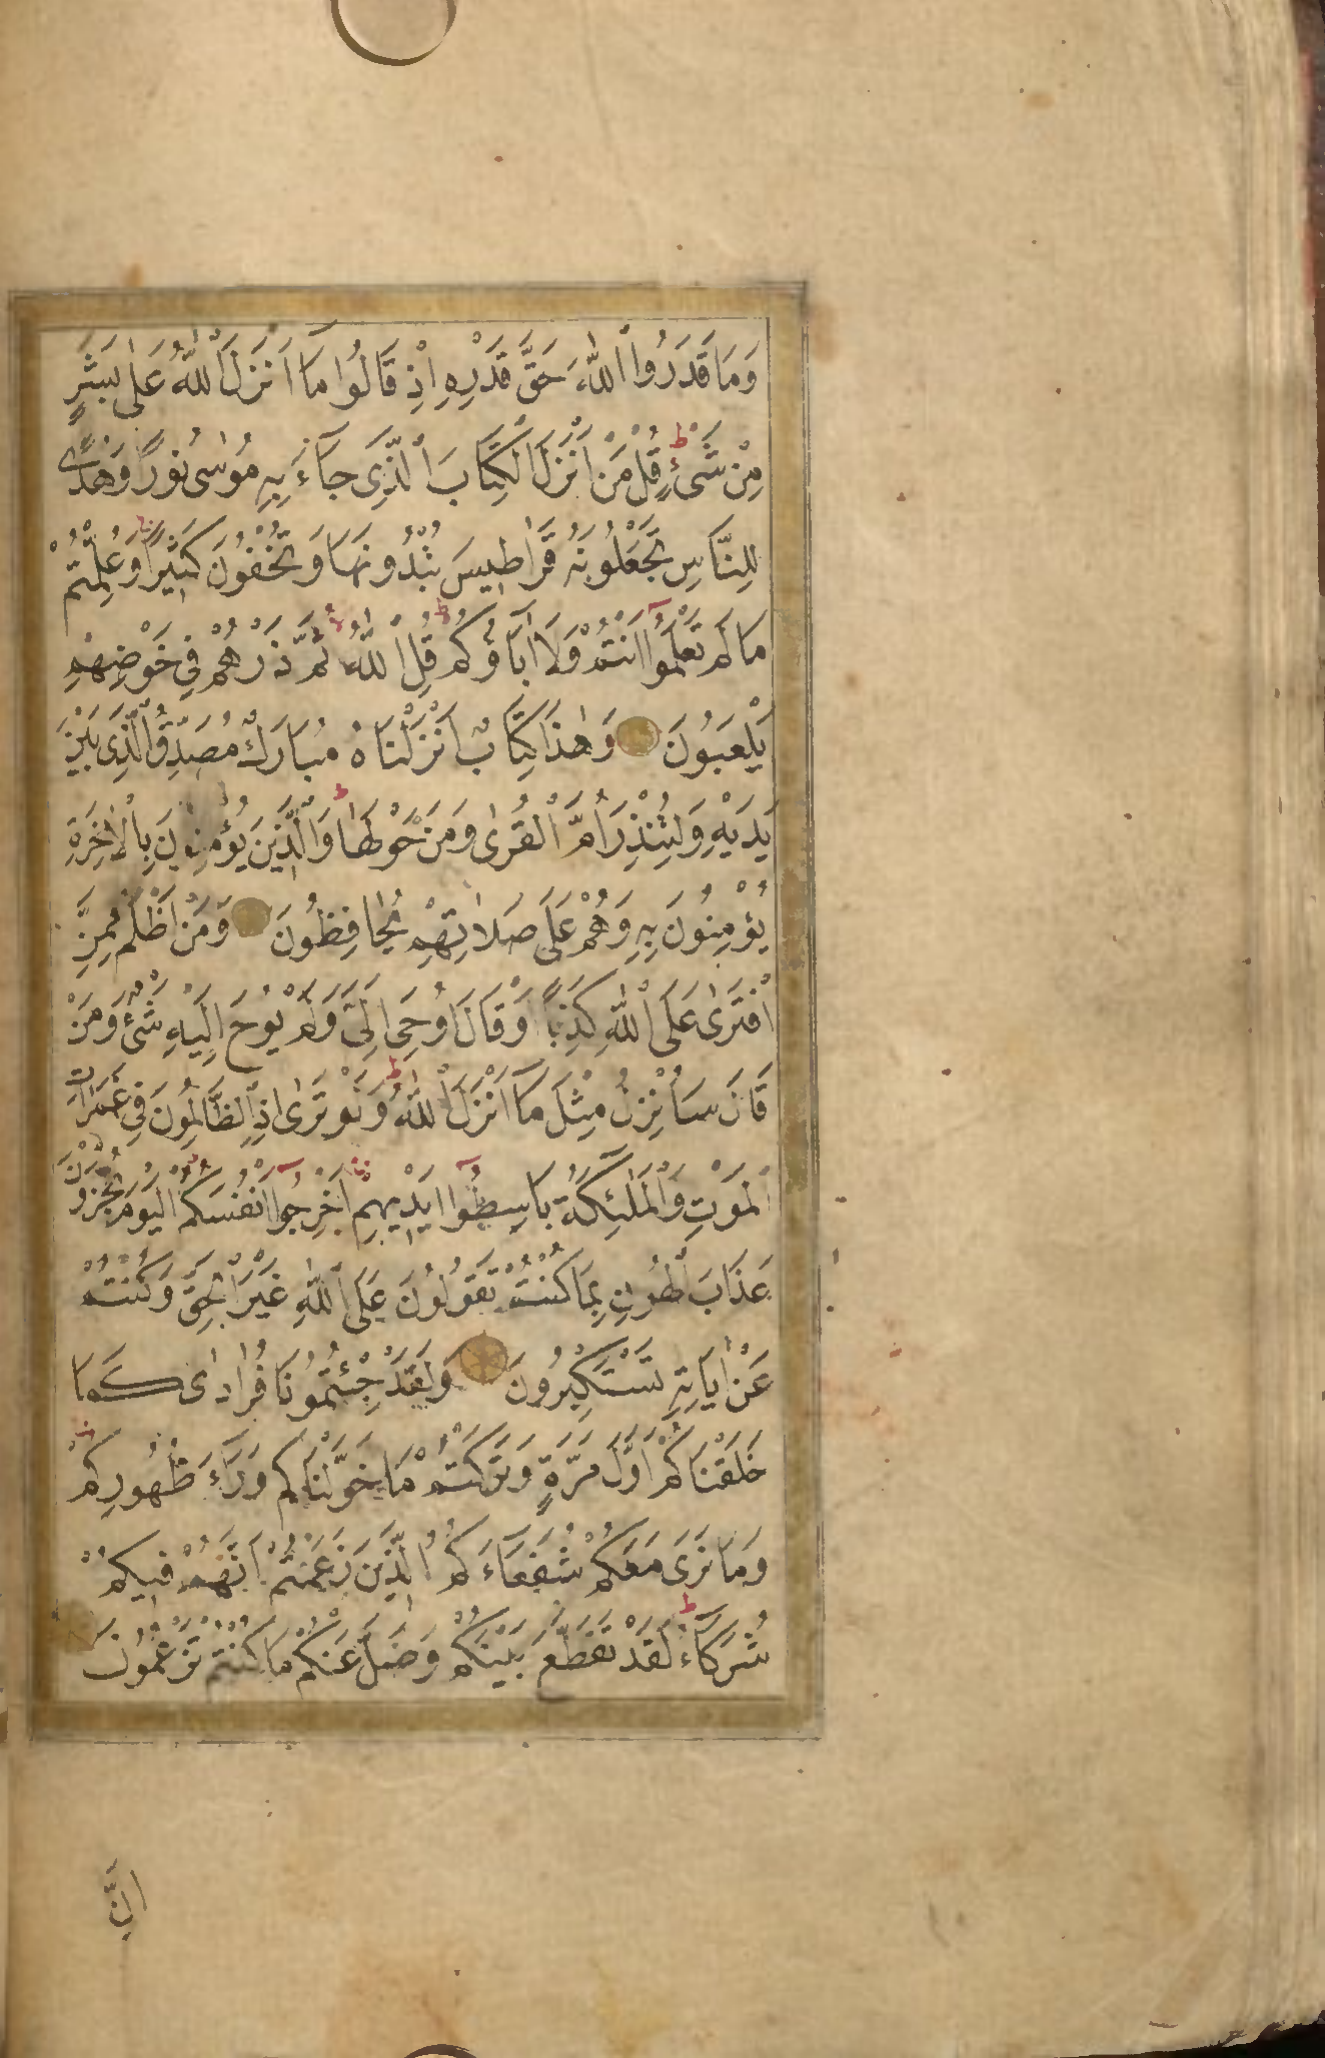 وَمَا قَدَرُوا اللّٰهَ حَقَّ قَدْرِهِ اِذْ قَالُوا مَا اَنْزَلَ اللّٰهُ عَلٰى بَشَرٍ
مِنْ شَیْءٍ ط قُلْ مَنْ اَنْزَلَ الْكِتَابَ الَّذِى جَاءَ بِهِ مُوسٰى نُورًا وَهُدًى
لِلنَّاسِ تَجْعَلُونَهُ قَرَاطِيسَ تُبْدُونَهَا وَتُخْفُونَ كَثِيرًا وَعُلِّمْتُمْ
مَا لَمْ تَعْلَمُوا اَنْتُمْ وَلَا اٰبَاؤُكُمْ ط قُلِ اللّٰهُ لا ثُمَّ ذَرْهُمْ فِى خَوْضِهِمْ
يَلْعَبُونَ وَهٰذَا كِتَابٌ اَنْزَلْنَاهُ مُبَارَكٌ مُصَدِّقُ الَّذِى بَيْنَ
يَدَيْهِ وَلِتُنْذِرَ اُمَّ الْقُرٰى وَمَنْ حَوْلَهَا ط وَالَّذِينَ يُؤْمِنُونَ بِالْاٰخِرَةِ
يُؤْمِنُونَ بِهِ وَهُمْ عَلَى صَلَاتِهِمْ يُحَافِظُونَ وَمَنْ اَظْلَمُ مِمَّنِ
افْتَرٰى عَلَى اللّٰهِ كَذِبًا اَوْ قَالَ اُوحِىَ اِلَىَّ وَلَمْ يُوحَ اِلَيْهِ شَىْءٌ وَمَنْ
قَالَ سَاُنْزِلُ مِثْلَ مَا اَنْزَلَ اللّٰهُ ط وَلَوْ تَرٰى اِذِ الظَّالِمُونَ فِى غَمَرَاتِ
الْمَوْتِ وَالْمَلٰئِكَةُ بَاسِطُوا اَيْدِيهِمْ اَخْرِجُوا اَنْفُسَكُمْ اَلْيَوْمَ تُجْزَوْنَ
عَذَابَ الْهُونِ بِمَا كُنْتُمْ تَقُولُونَ عَلَى اللّٰهِ غَيْرَ الْحَقِّ وَكُنْتُمْ
عَنْ اٰيَاتِهِ تَسْتَكْبِرُونَ وَلَقَدْ جِئْتُمُونَا فُرَادٰى كَمَا
خَلَقْنَاكُمْ اَوَّلَ مَرَّةٍ وَتَرَكْتُمْ مَا خَوَّلْنَاكُمْ وَرَاءَ ظُهُورِكُمْ
وَمَا نَرَى مَعَكُمْ شُفَعَاءَكُمُ الَّذِينَ زَعَمْتُمْ اَنَّهُمْ فِيكُمْ
شُرَكَاءُ ط لَقَدْ تَقَطَّعَ بَيْنَكُمْ وَضَلَّ عَنْكُمْ مَا كُنْتُمْ تَزْعُمُونَ
اِنَّ